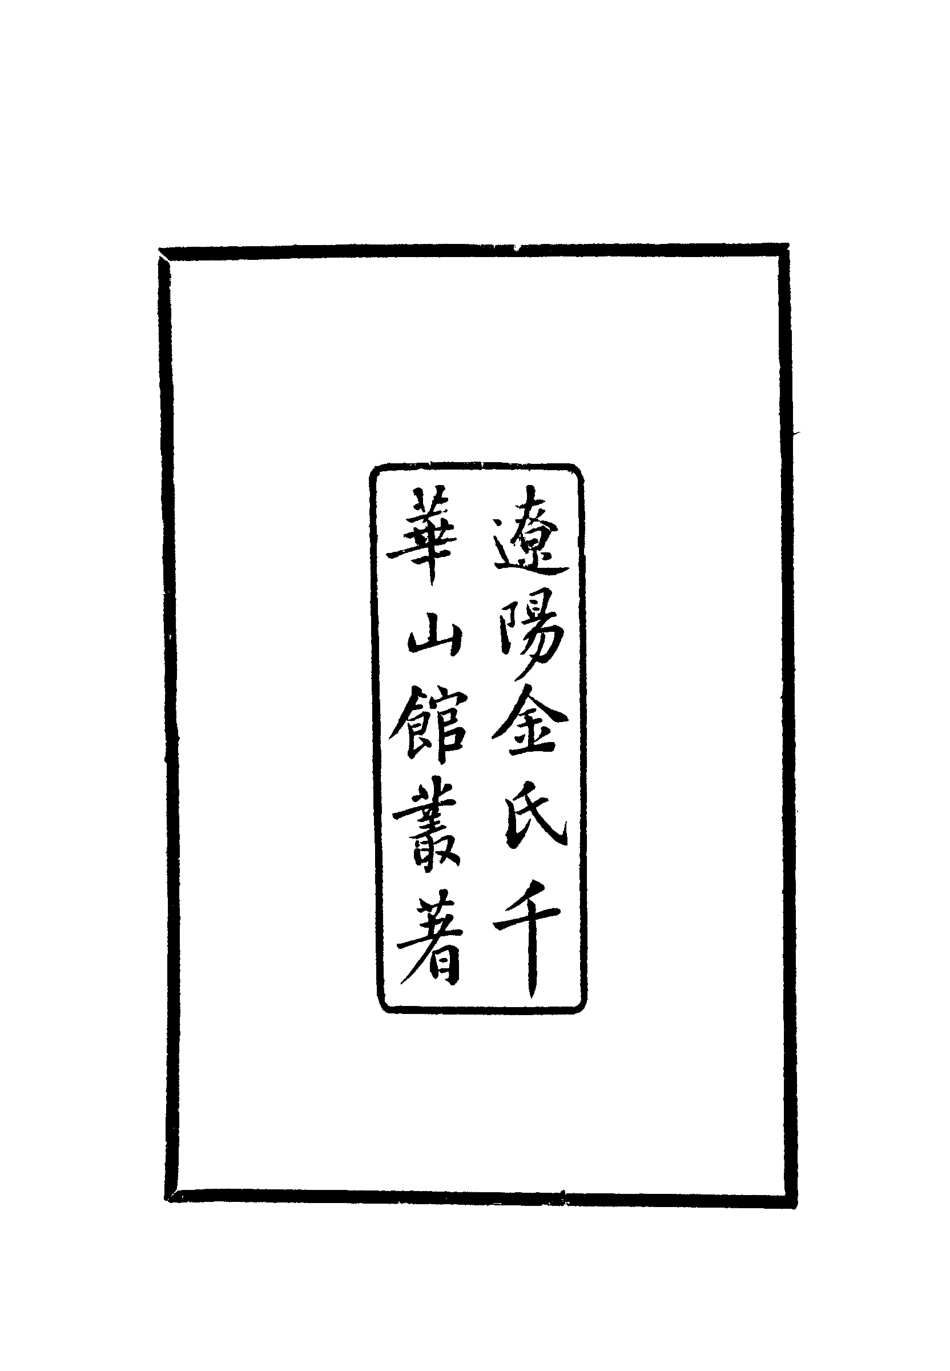 遼陽金氏千
華山館叢著